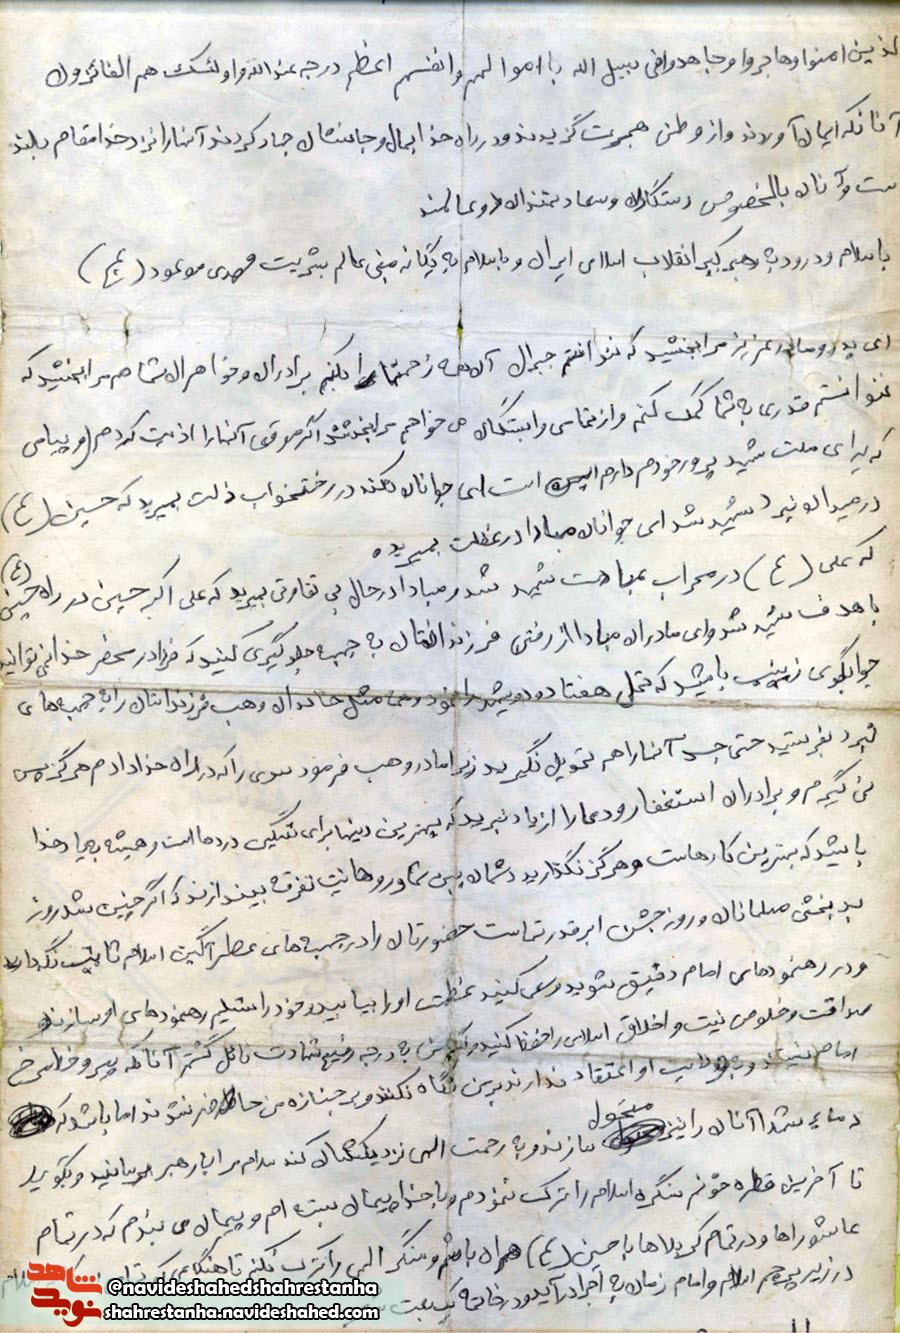 الذین امنوا و هاجروا و جاهدوا فی سبیل الله با اموالهم و انفسهم اعظم درجه عندالله و اولئک هم الفائزون
آنانکه ایمان آوردند و از وطن هجرت گزیدند و در راه خدا بمال و جانشان جهاد کردند آنها را نزد خدا مقام بلند
ست و آنان بالخصوص رستگاران و سعادتمندان دو عالمند
با سلام و درود به رهبر کبیر انقلاب اسلامی ایران و با سلام به یگانه منجی عالم بشریت مهدی موعود (عج)
ای پدر و مادر عزیز مرا ببخشید که نتوانستم جبران آن همه زحمتها را بکنم برادران و خواهران شما هم مرا ببخشید که
نتوانستم قدری به شما کمک کنم و از تمامی وابستگان می خواهم مرا ببخشند اگر موقعی آنها را اذیت کردم و پیامی
که برای ملت شهید پرور خودم دارم این است ای جوانان نکند در رختخواب ذلت بمیرید که حسین (ع)
در میدان نبرد شهید شد ای جوانان مبادا در غفلت بمیرید
که علی (ع) در محراب عبادت شهید شد و مبادا در حال بی تفاوتی بمیرید که علی اکبر حسین در راه حسین (ع)
با هدف شهید شد و ای مادران مبادا از رفتن فرزندانتان به جبهه جلوگیری کنید که فردا در محضر خدا نمی توانید
جوابگوی زینب باشید که تحمل هفتاد و دو شهید را نمود و مثل خاندان وهب فرزندانتان را به جبهه های
نبرد بفرستید حتی جسد آنها را هم تحویل نگیرید زیرا مادر وهب فرمود سری را که در راه خدا دادم هرگز پس
نمی گیرم و برادران استغفار و دعا را از یاد نبرید که بهترین درمانها برای تسکین دردها است و همیشه به یاد خدا
باشید که بهترین کارهاست و هرگز نگذارید دشمنان بین شما و روحانیت تفرقه بیندازند که اگر چنین شد روز
بدبختی مسلمانان و روز جشن ابرقدرتهاست حضورتان را در جبهه های عطرآگین اسلام ثابت نگه دارید
و در رهنمودهای امام دقیق شوید و سعی کنید عظمت او را بیابید و خود را تسلیم رهنمودهای او سازید و
صداقت و خلوص نیت و اخلاق اسلامی را حفظ کنید به درجه رفیع شهادت نائل گشتم آنانکه پیرو خط سرخ
امام نیستند و به ولایت او اعتقاد ندارند بر من نگاه نکنند و بر جنازه من حاضر نشوند اما باشد که
دماء شهدا آنان را نیز متحول سازند و به رحمت الهی نزدیکشان کند سلام مرا به رهبر برسانید و بگویید
تا آخرین قطره خونم سنگر اسلام را ترک ننمودم و با خدا پیمان بسته ام و پیمان می بندم که در تمام
عاشوراها و در تمام کربلاها با حسین (ع) همراه باشم و سنگر الهی را ترک نکنم تا هنگامی که
در زیر پرچم اسلام و امام زمان به اجرا در آید و در خاتمه
شاهد
نوید
@navideshahedshahrestanha
shahrestanha.navideshahed.com